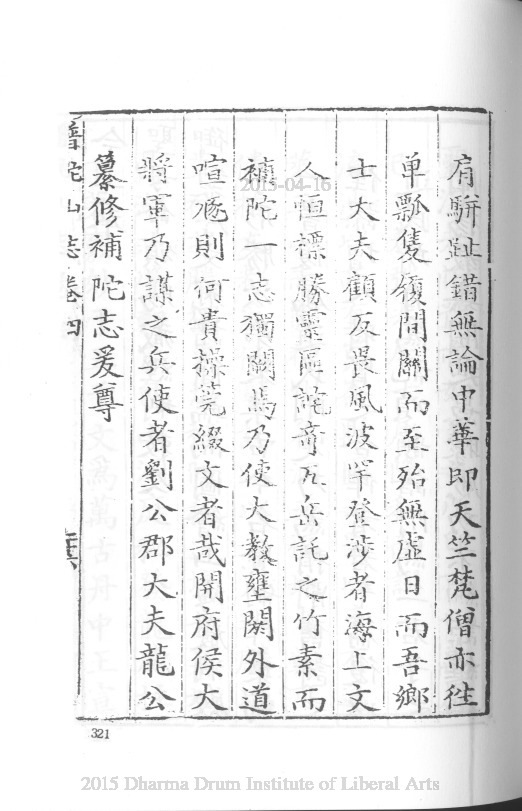 肩駢趾錯無論中華即天竺梵僧亦徃
单瓢隻履間關而至殆無虛日而吾鄉
士大夫顧反畏風波罕登涉者海上文
人恒標勝靈區詫竒五岳託之竹素而
補陀一志獨闕焉乃使大教壅閼外道
喧豗則何貴操觚綴文者哉開府侯大
將軍乃謀之兵使者劉公郡大夫龍公
纂修補陀志爰尊
普陀山志卷四
2015-04-16
321
2015 Dharma Drum Institute of Liberal Arts